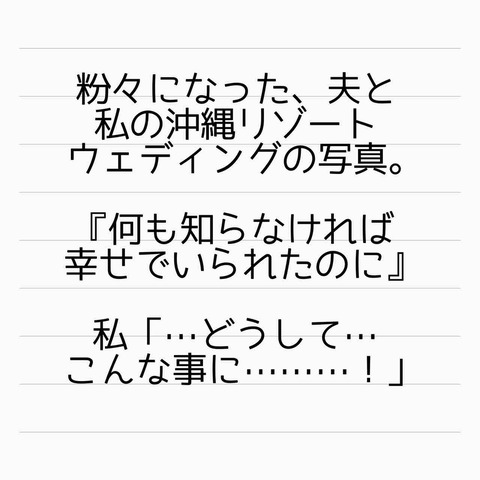 粉々になった、夫と
私の沖縄リゾート
ウェディングの写真。
『何も知らなければ
幸せでいられたのに』
私「…どうして…
こんな事に………！」